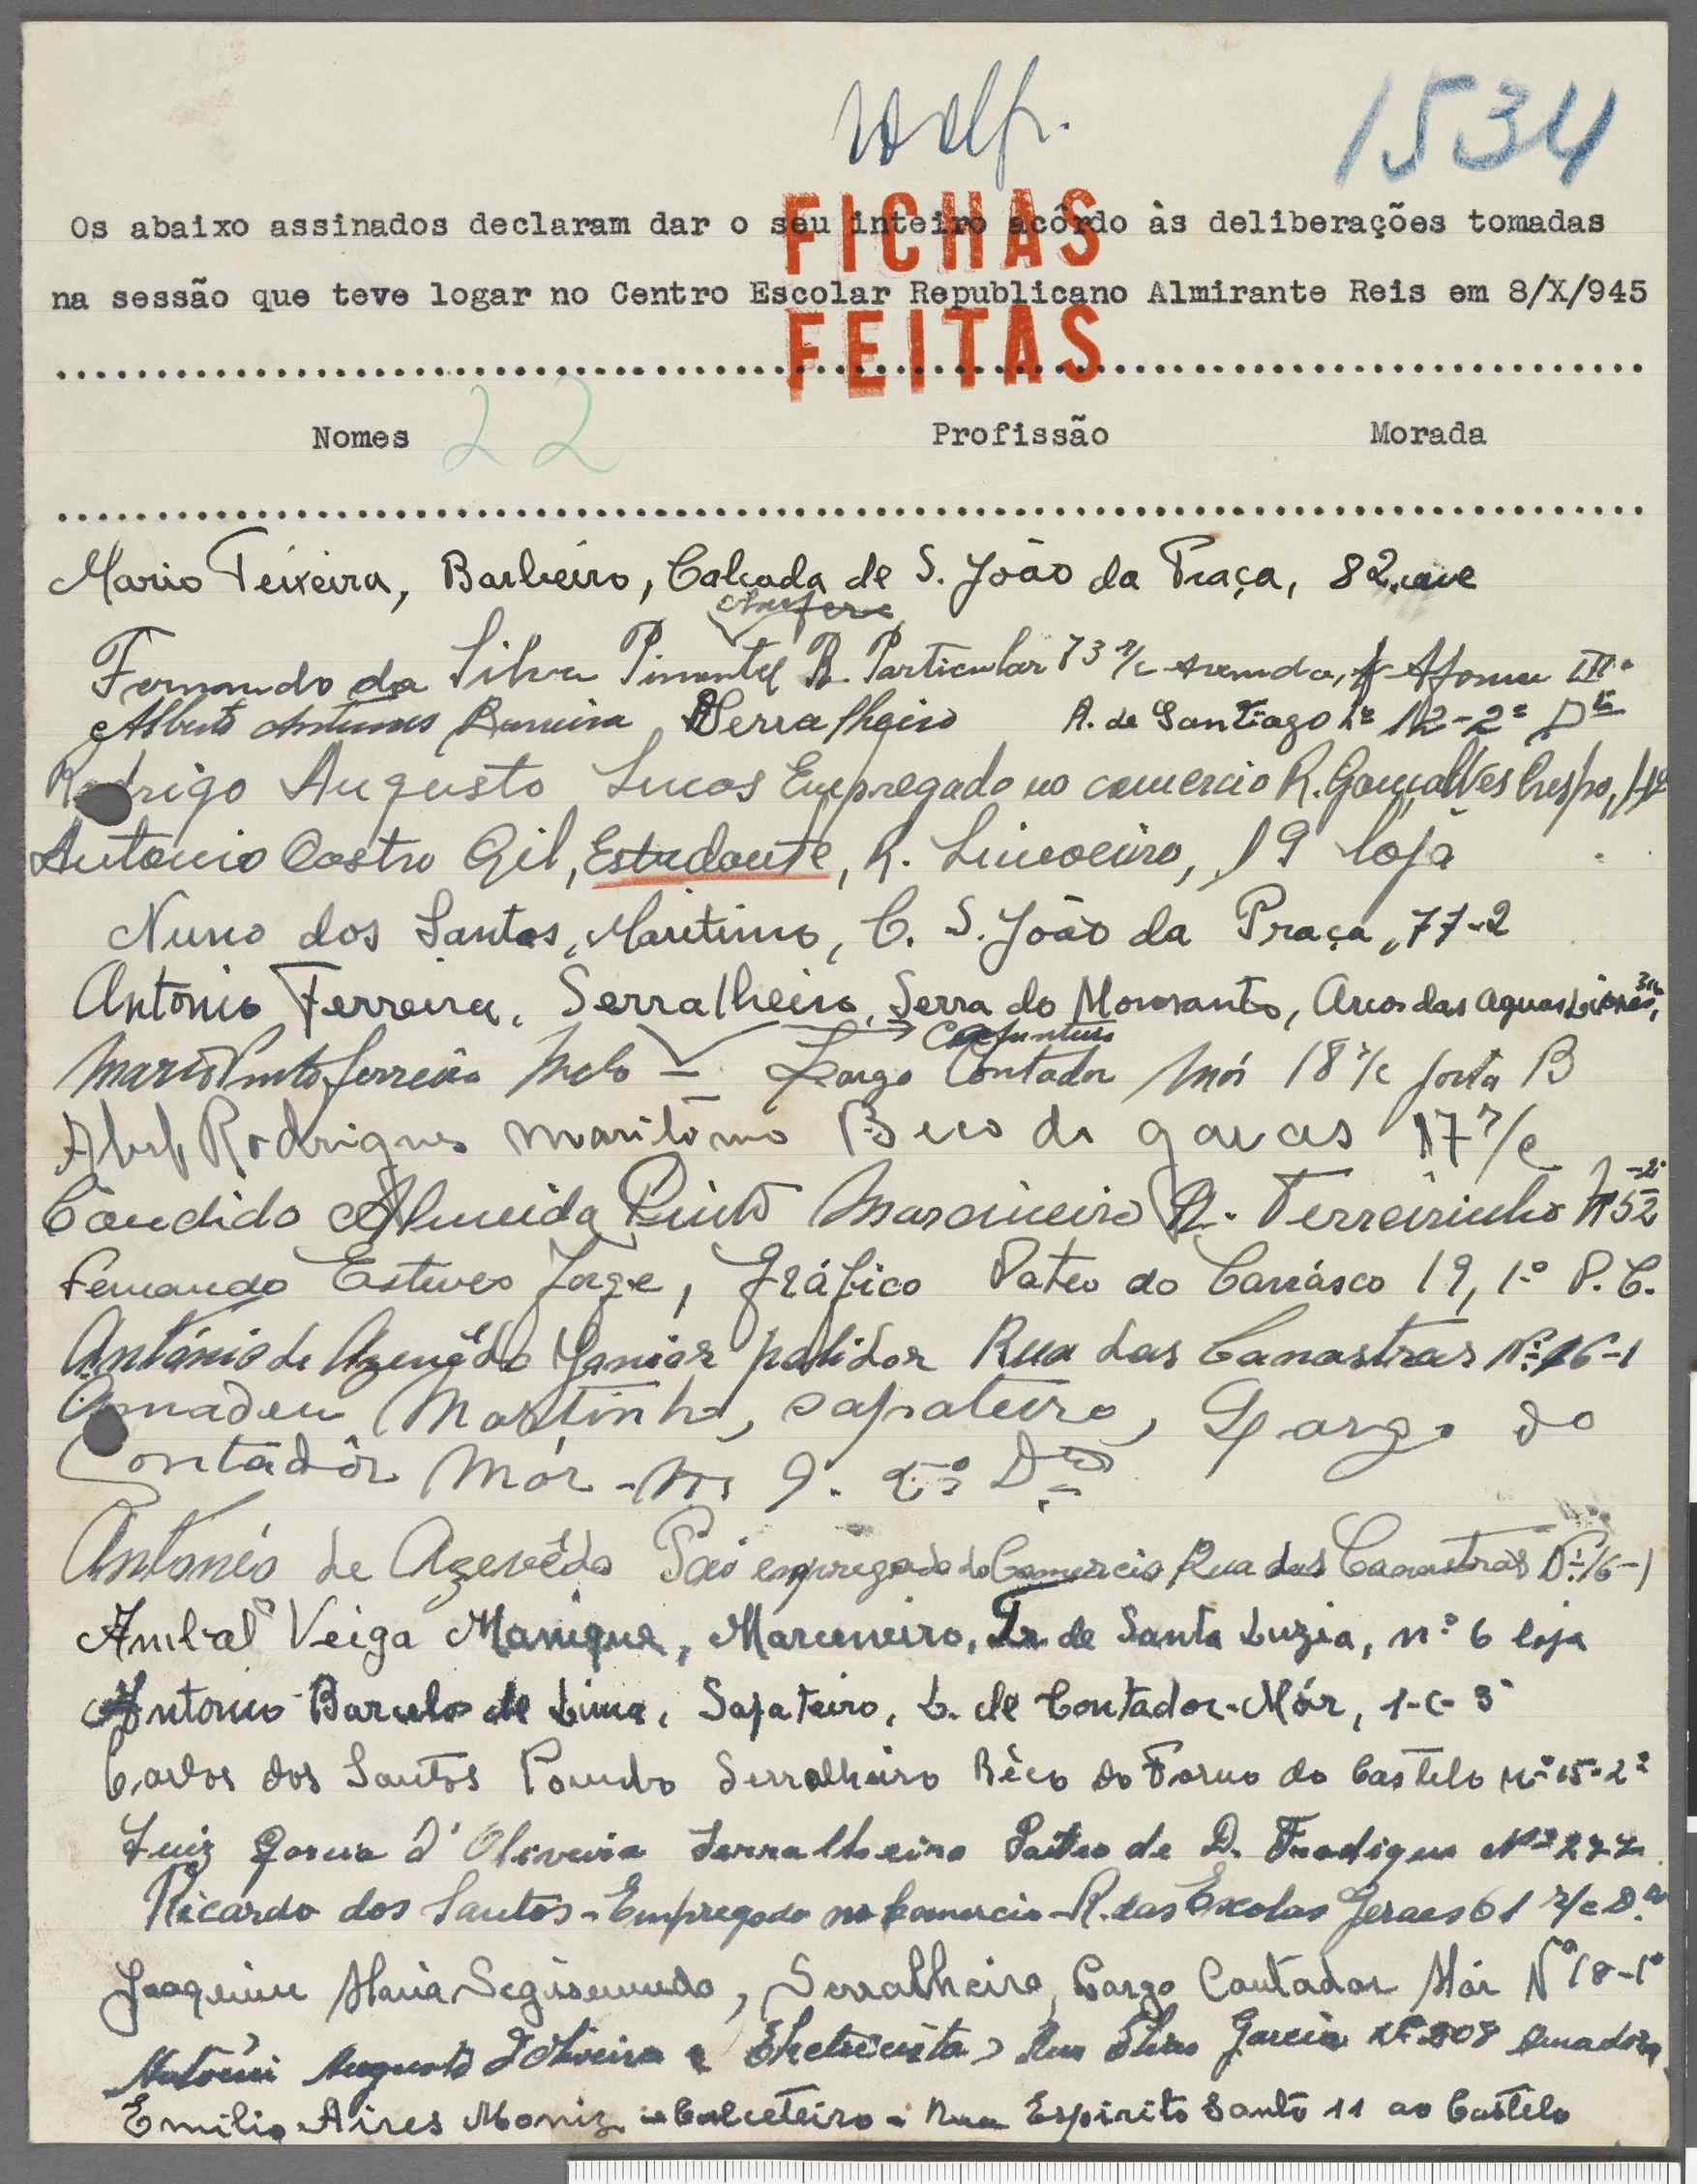 1534
Os abaixo assinados declaram dar o seu inteiro acôrdo às deliberações tomadas
FICHAS
na sessão que teve logar no Centro Escolar Republicano Almirante Reis em 8/X/945
FEITAS
Nomes 22 Profissão Morada
Mario Teixeira, Barbeiro, Calçada de S. João da Praça, 82, cave
Fernando da Silva Pimentel R. Particular 73 r/c Avenida, Afonso III
Alberto Antunes Serralheiro R. de Santiago 12-2º Dto
Rodrigo Augusto Lucas Empregado no comercio R. Gonçalves Crespo,
Antonio Castro Gil, Estudante, R. Limoeiro, 19 loja
Nuno dos Santos, Maritimo, C. S. João da Praça, 77-2
Antonio Ferreira, Serralheiro, Serra do Monsanto, Arcos das Aguas Livres,
Mario Pinto Ferreira Melo - Largo Contador Mór 18 r/c porta B
Rodrigues maritimo Beco de 17 r/c
Candido Almeida Pinto Marcineiro R. Terreirinho Nº 52 -2º
Fernando Esteves Jorge, Gráfico Pateo do Carrásco 19, 1º P. C.
António de Azevêdo Junior polidor Rua das Canastras Nº 16-1
Amadeu Martinho, sapateiro, Largo do
Contadôr Mór - Nº 9. 2º Dto
António de Azevêdo Pai empregado do Comercio Rua das Canastras Nº 16-1
Anibal Veiga Manique, Marceneiro, Tr. de Santa Luzia, nº 6 loja
Antonio Barcelos de Lima, Sapateiro, L. de Contador-Mór, 1-C-3º
Carlos dos Santos Serralheiro Bêco do Forno do Castelo Nº 15-2º
Luiz Garcia d'Oliveira Serralheiro Pateo de D. Fradique Nº
Ricardo dos Santos - Empregado no Comercio - R. das Escolas Geraes 61 r/c D.to
Joaquim Maria Segismundo, Serralheiro, Largo Contador Mór Nº 18-1º
Augusto d'Oliveira Electricista, Rua Elias Garcia Nº Amadora
Emilio Aires Moniz - Calceteiro - Rua Espirito Santo 11 ao Castelo